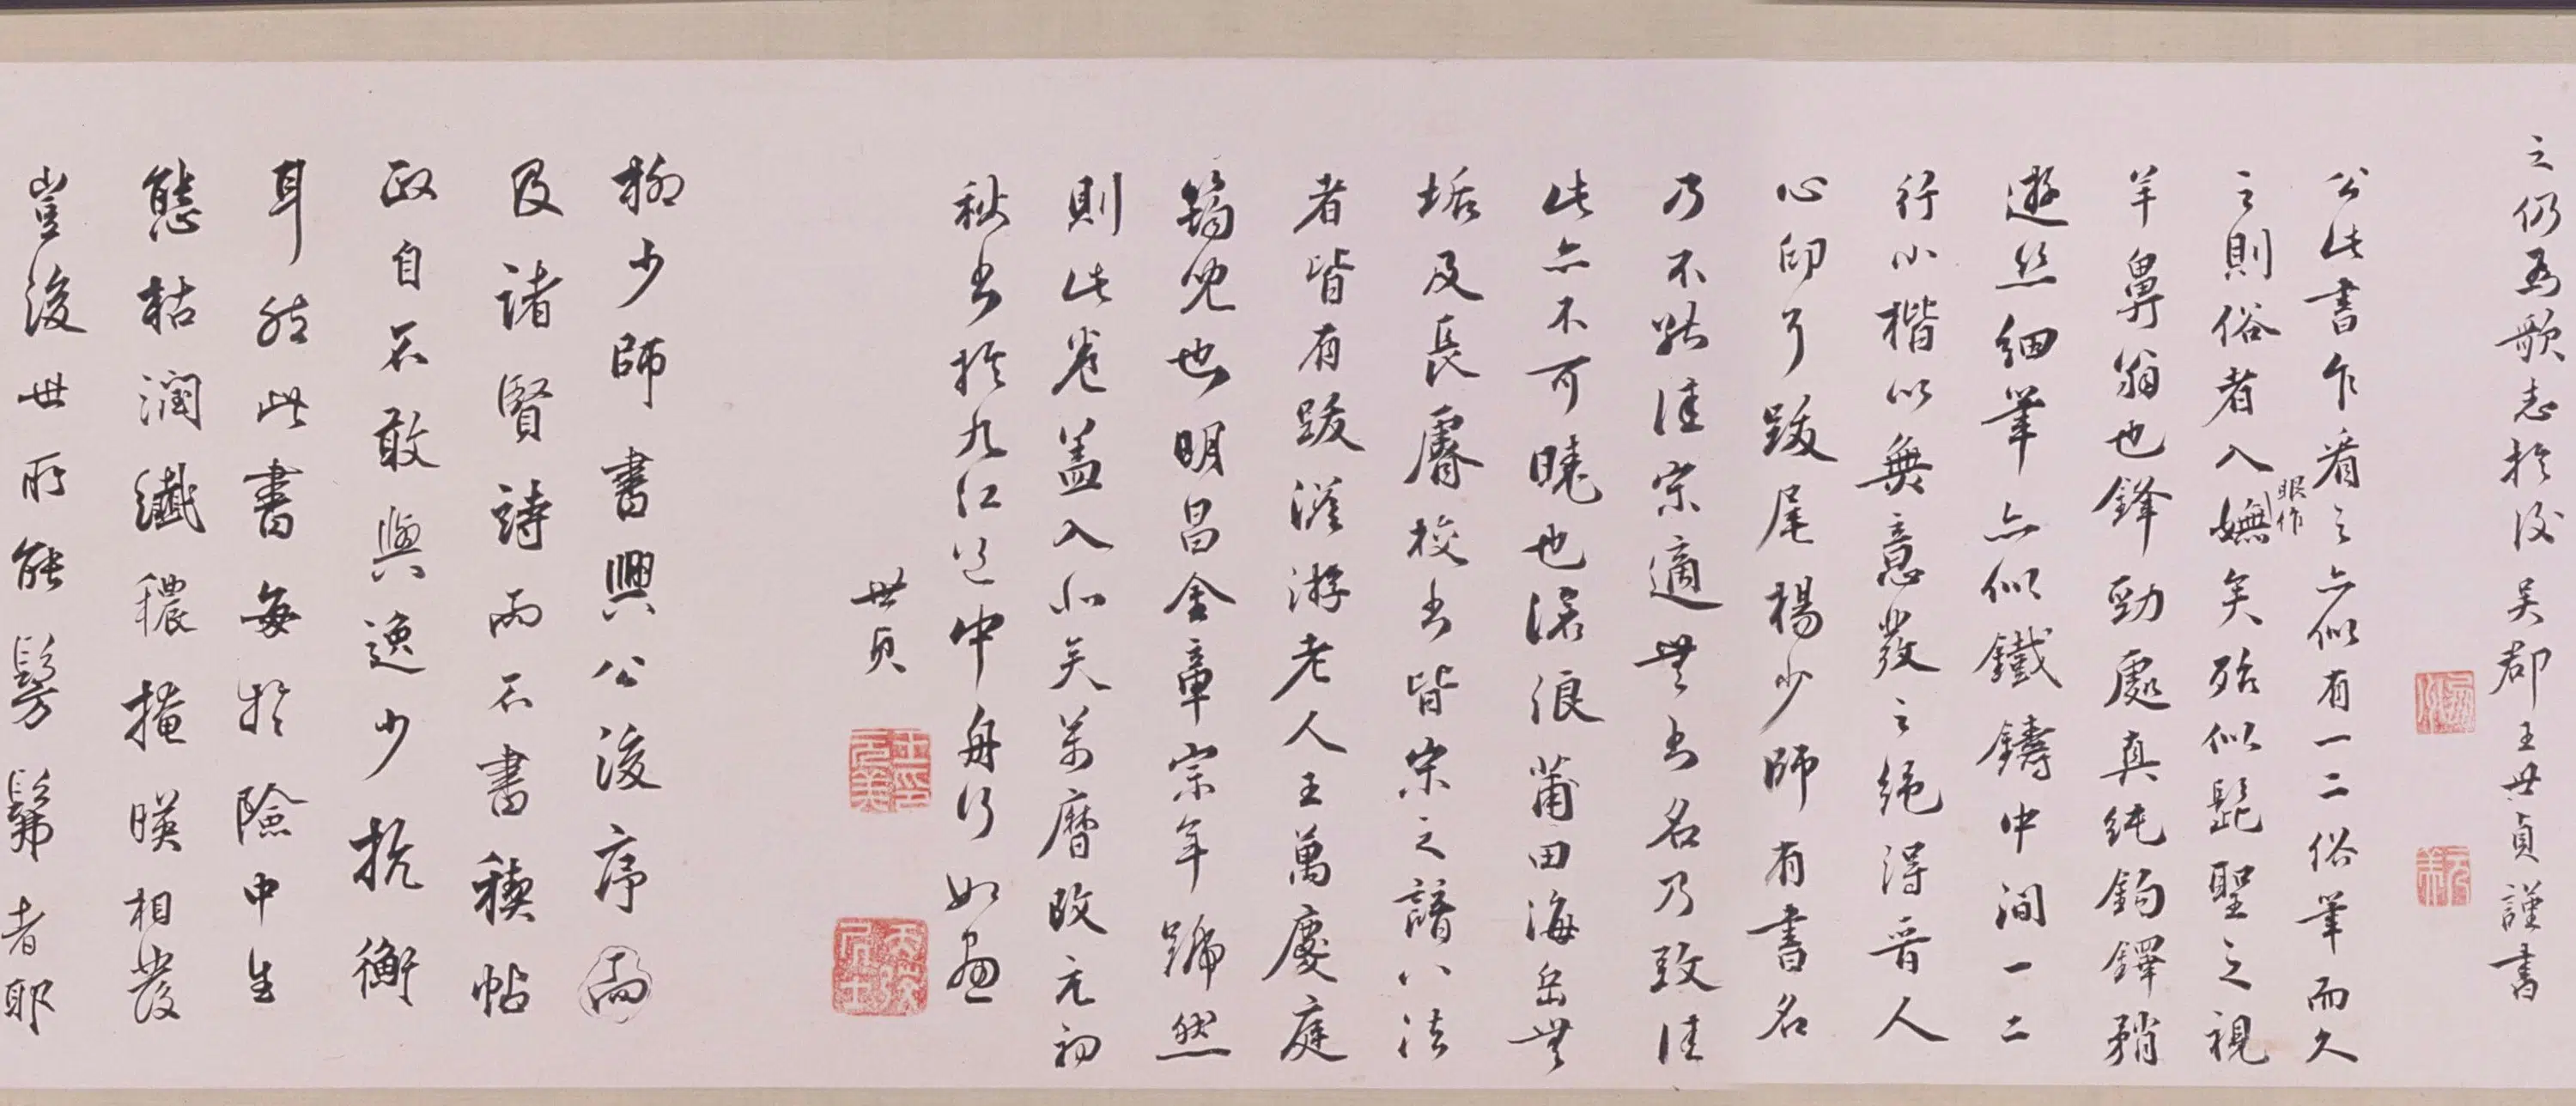 之仍為歌志於後吳郡王世貞謹書
公此書乍看之亦似有一二俗筆而久
之則俗者入嫵矣殆似髭聖之視
眼作
羊鼻翁也鋒勁處真純鈎鐸矟
遊絲細筆亦似鐵鑄中間一二
行小楷以無意發之絕得晉人
心印了跋尾楊少師有書名
乃不能佳宗適無書名乃致佳
此亦不可曉也滄浪莆田海岳無
垢及長睿校書皆宋之諳八法
者皆有跋漫游老人王萬慶庭
筠兒也明昌金章宗年號然
則此卷蓋入北矣萬曆改元初
秋書於九江道中舟行如畫
世貞
王氏元美
天弢居士
柳少師書興公後序
及諸賢詩而不書稧帖
政自不敢與逸少抗衡
耳然此書每於險中生
態枯潤纖穠掩暎相發
豈後世所能髣髴者耶